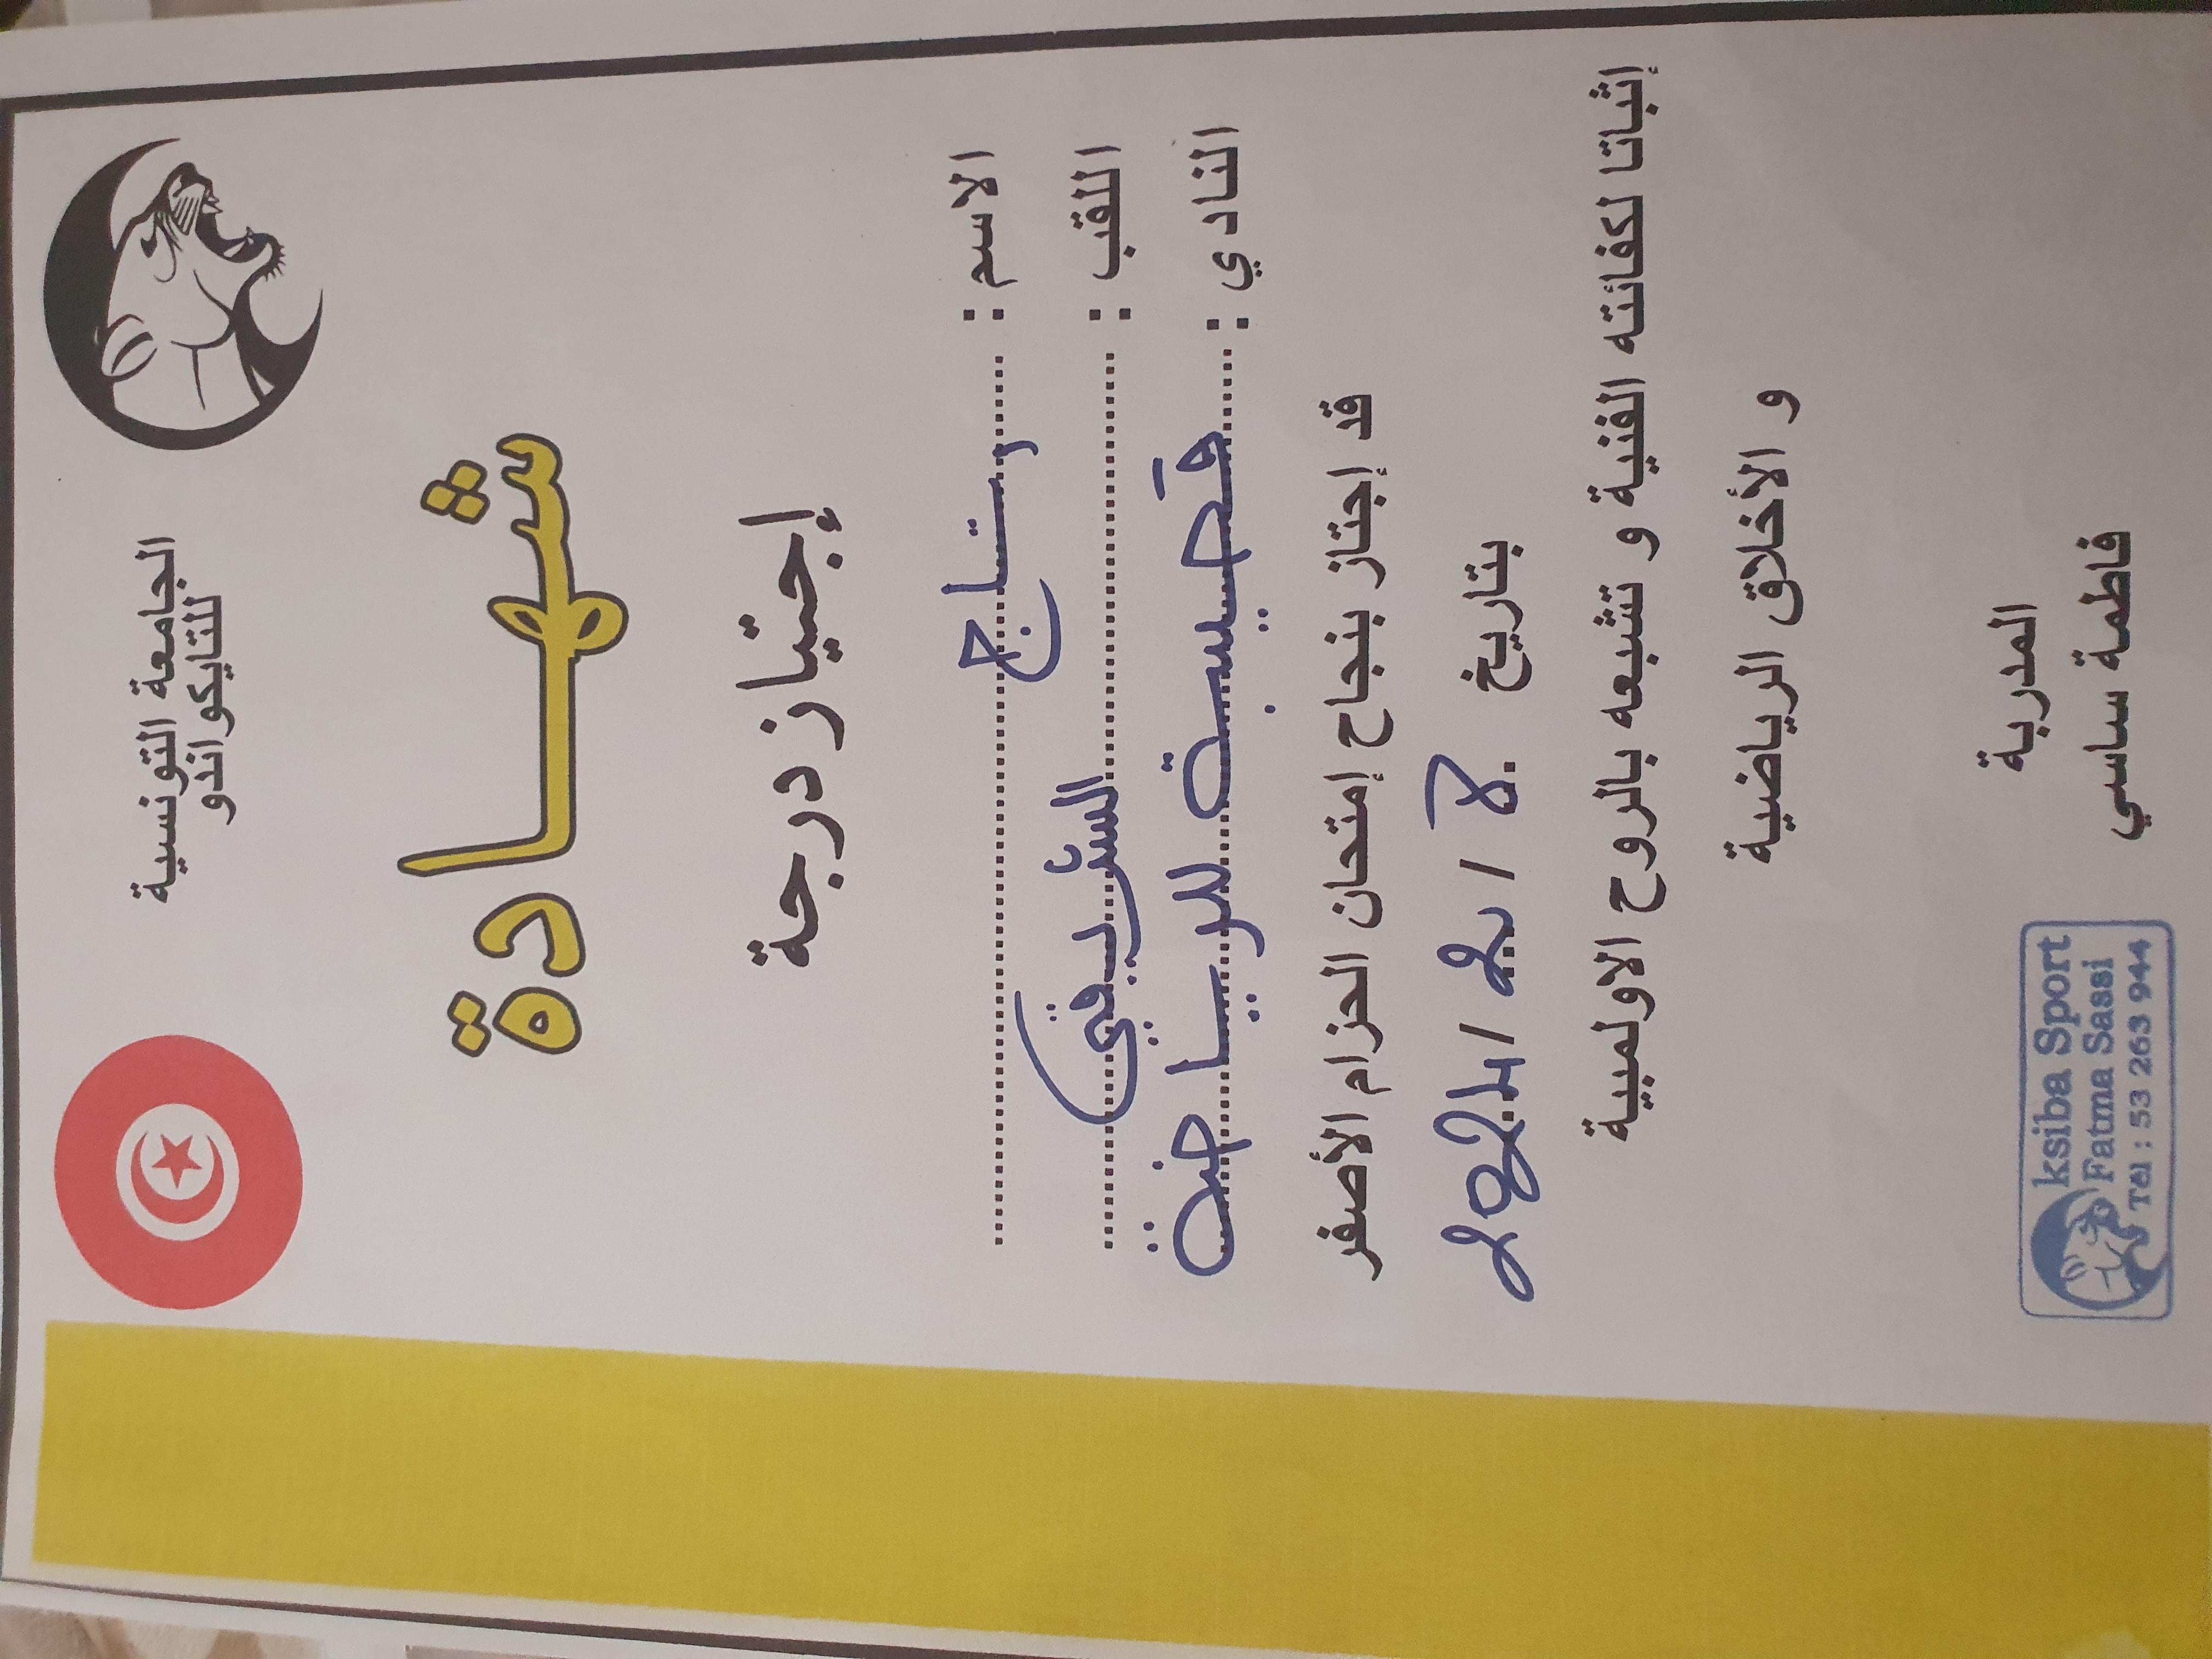 الجامعة التونسية
للتايكواندو
شهادة
إجتياز درجة
الاسم : رتاج
اللقب : الشريقي
النادي : قصيبة للرياضة
قد إجتاز بنجاح إمتحان الحزام الأصفر
بتاريخ
إثباتا لكفائته الفنية و تشبعه بالروح الاولمبية
و الأخلاق الرياضية
المدربة
فاطمة ساسي
ksiba Sport
Fatma Sassi
Tél : 53 263 944